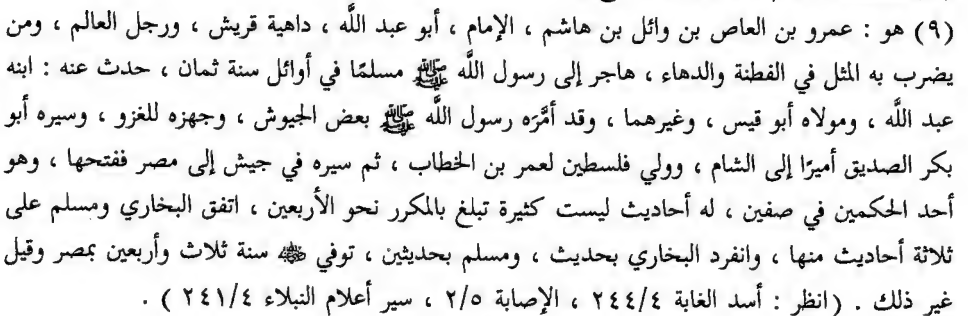 (٩) هو : عمرو بن العاص بن وائل بن هاشم ، الإمام ، أبو عبد اللَّه ، داهية قريش ، ورجل العالم ، ومن
يضرب به المثل في الفطنة والدهاء ، هاجر إلى رسول اللَّه ﷺ مسلمًا في أوائل سنة ثمان ، حدث عنه : ابنه
عبد اللَّه ، ومولاه أبو قيس ، وغيرهما ، وقد أمَّرَه رسول اللَّه ﷺ بعض الجيوش ، وجهزه للغزو ، وسيره أبو
بكر الصديق أميرًا إلى الشام ، وولي فلسطين لعمر بن الخطاب ، ثم سيره في جيش إلى مصر ففتحها ، وهو
أحد الحكمين في صفين ، له أحاديث ليست كثيرة تبلغ بالمكرر نحو الأربعين ، اتفق البخاري ومسلم على
ثلاثة أحاديث منها ، وانفرد البخاري بحديث ، ومسلم بحديثين ، توفي ﷺ سنة ثلاث وأربعين بمصر وقيل
غير ذلك . ( انظر : أسد الغابة ٢٤٤/٤ ، الإصابة ٢/٥ ، سير أعلام النبلاء ٢٤١/٤ ) .